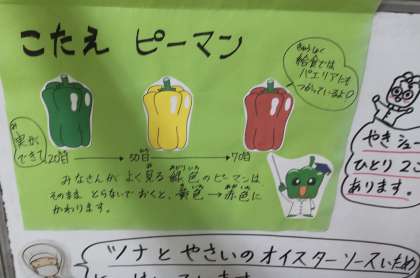 こたえ ピーマン
給食では
パエリアにも
つかっているよ
実が
できて
20日
50日
70日
みなさんが よく見る 緑色のピーマンは
そのまま とらないでおくと、黄色→赤色に
かわります。
やきシュー
ひとり 2こ
あります。
ツナと やさいの オイスターソースいため